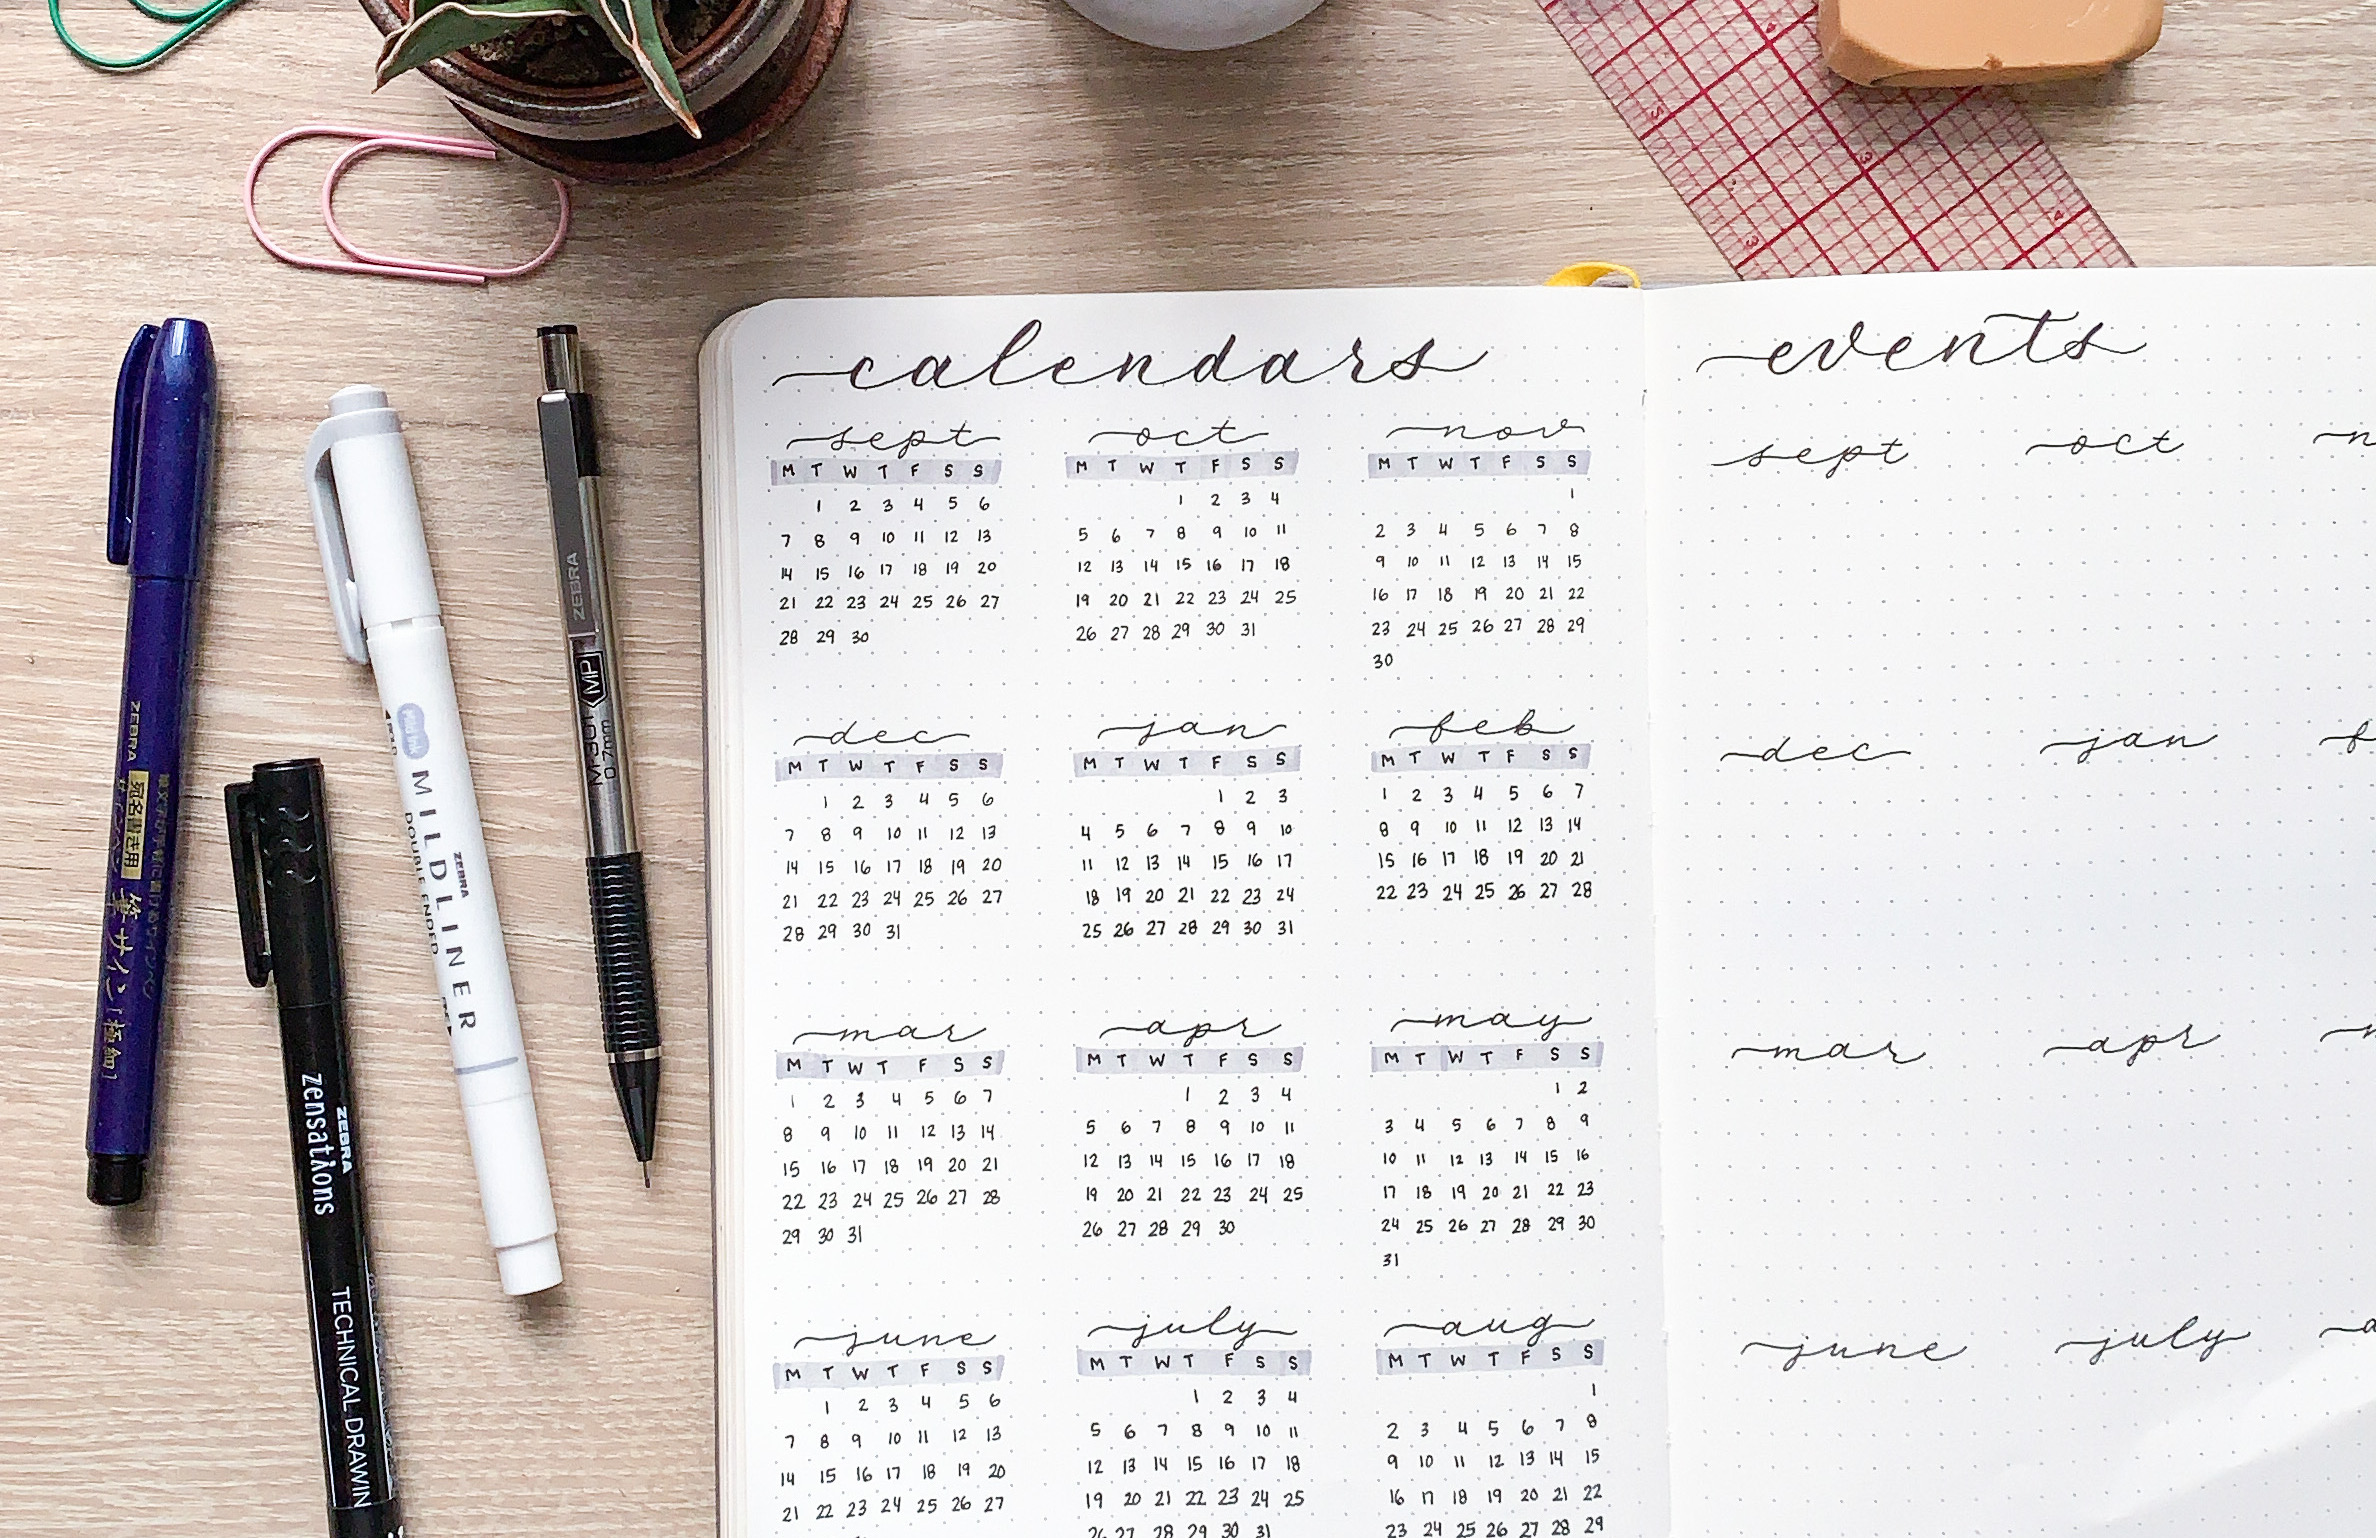 calendars
sept
M T W T F S S
1 2 3 4 5 6
7 8 9 10 11 12 13
14 15 16 17 18 19 20
21 22 23 24 25 26 27
28 29 30
oct
M T W T F S S
1 2 3 4
5 6 7 8 9 10 11
12 13 14 15 16 17 18
19 20 21 22 23 24 25
26 27 28 29 30 31
nov
M T W T F S S
1
2 3 4 5 6 7 8
9 10 11 12 13 14 15
16 17 18 19 20 21 22
23 24 25 26 27 28 29
30
dec
M T W T F S S
1 2 3 4 5 6
7 8 9 10 11 12 13
14 15 16 17 18 19 20
21 22 23 24 25 26 27
28 29 30 31
jan
M T W T F S S
1 2 3
4 5 6 7 8 9 10
11 12 13 14 15 16 17
18 19 20 21 22 23 24
25 26 27 28 29 30 31
feb
M T W T F S S
1 2 3 4 5 6 7
8 9 10 11 12 13 14
15 16 17 18 19 20 21
22 23 24 25 26 27 28
mar
M T W T F S S
1 2 3 4 5 6 7
8 9 10 11 12 13 14
15 16 17 18 19 20 21
22 23 24 25 26 27 28
29 30 31
apr
M T W T F S S
1 2 3 4
5 6 7 8 9 10 11
12 13 14 15 16 17 18
19 20 21 22 23 24 25
26 27 28 29 30
may
M T W T F S S
1 2
3 4 5 6 7 8 9
10 11 12 13 14 15 16
17 18 19 20 21 22 23
24 25 26 27 28 29 30
31
june
M T W T F S S
1 2 3 4 5 6
7 8 9 10 11 12 13
14 15 16 17 18 19 20
21 22 23 24 25 26 27
july
M T W T F S S
1 2 3 4
5 6 7 8 9 10 11
12 13 14 15 16 17 18
19 20 21 22 23 24 25
26 27 28 29 30 31
aug
M T W T F S S
1
2 3 4 5 6 7 8
9 10 11 12 13 14 15
16 17 18 19 20 21 22
23 24 25 26 27 28 29
events
sept oct
dec jan
mar apr
june july
ZEBRA 宛名書き用 筆サイン「極細」
mild ink
ZEBRA
MILDLINER
DOUBLE ENDED
ZEBRA
M-301 MP
0.7mm
ZEBRA
zensations
TECHNICAL DRAWIN